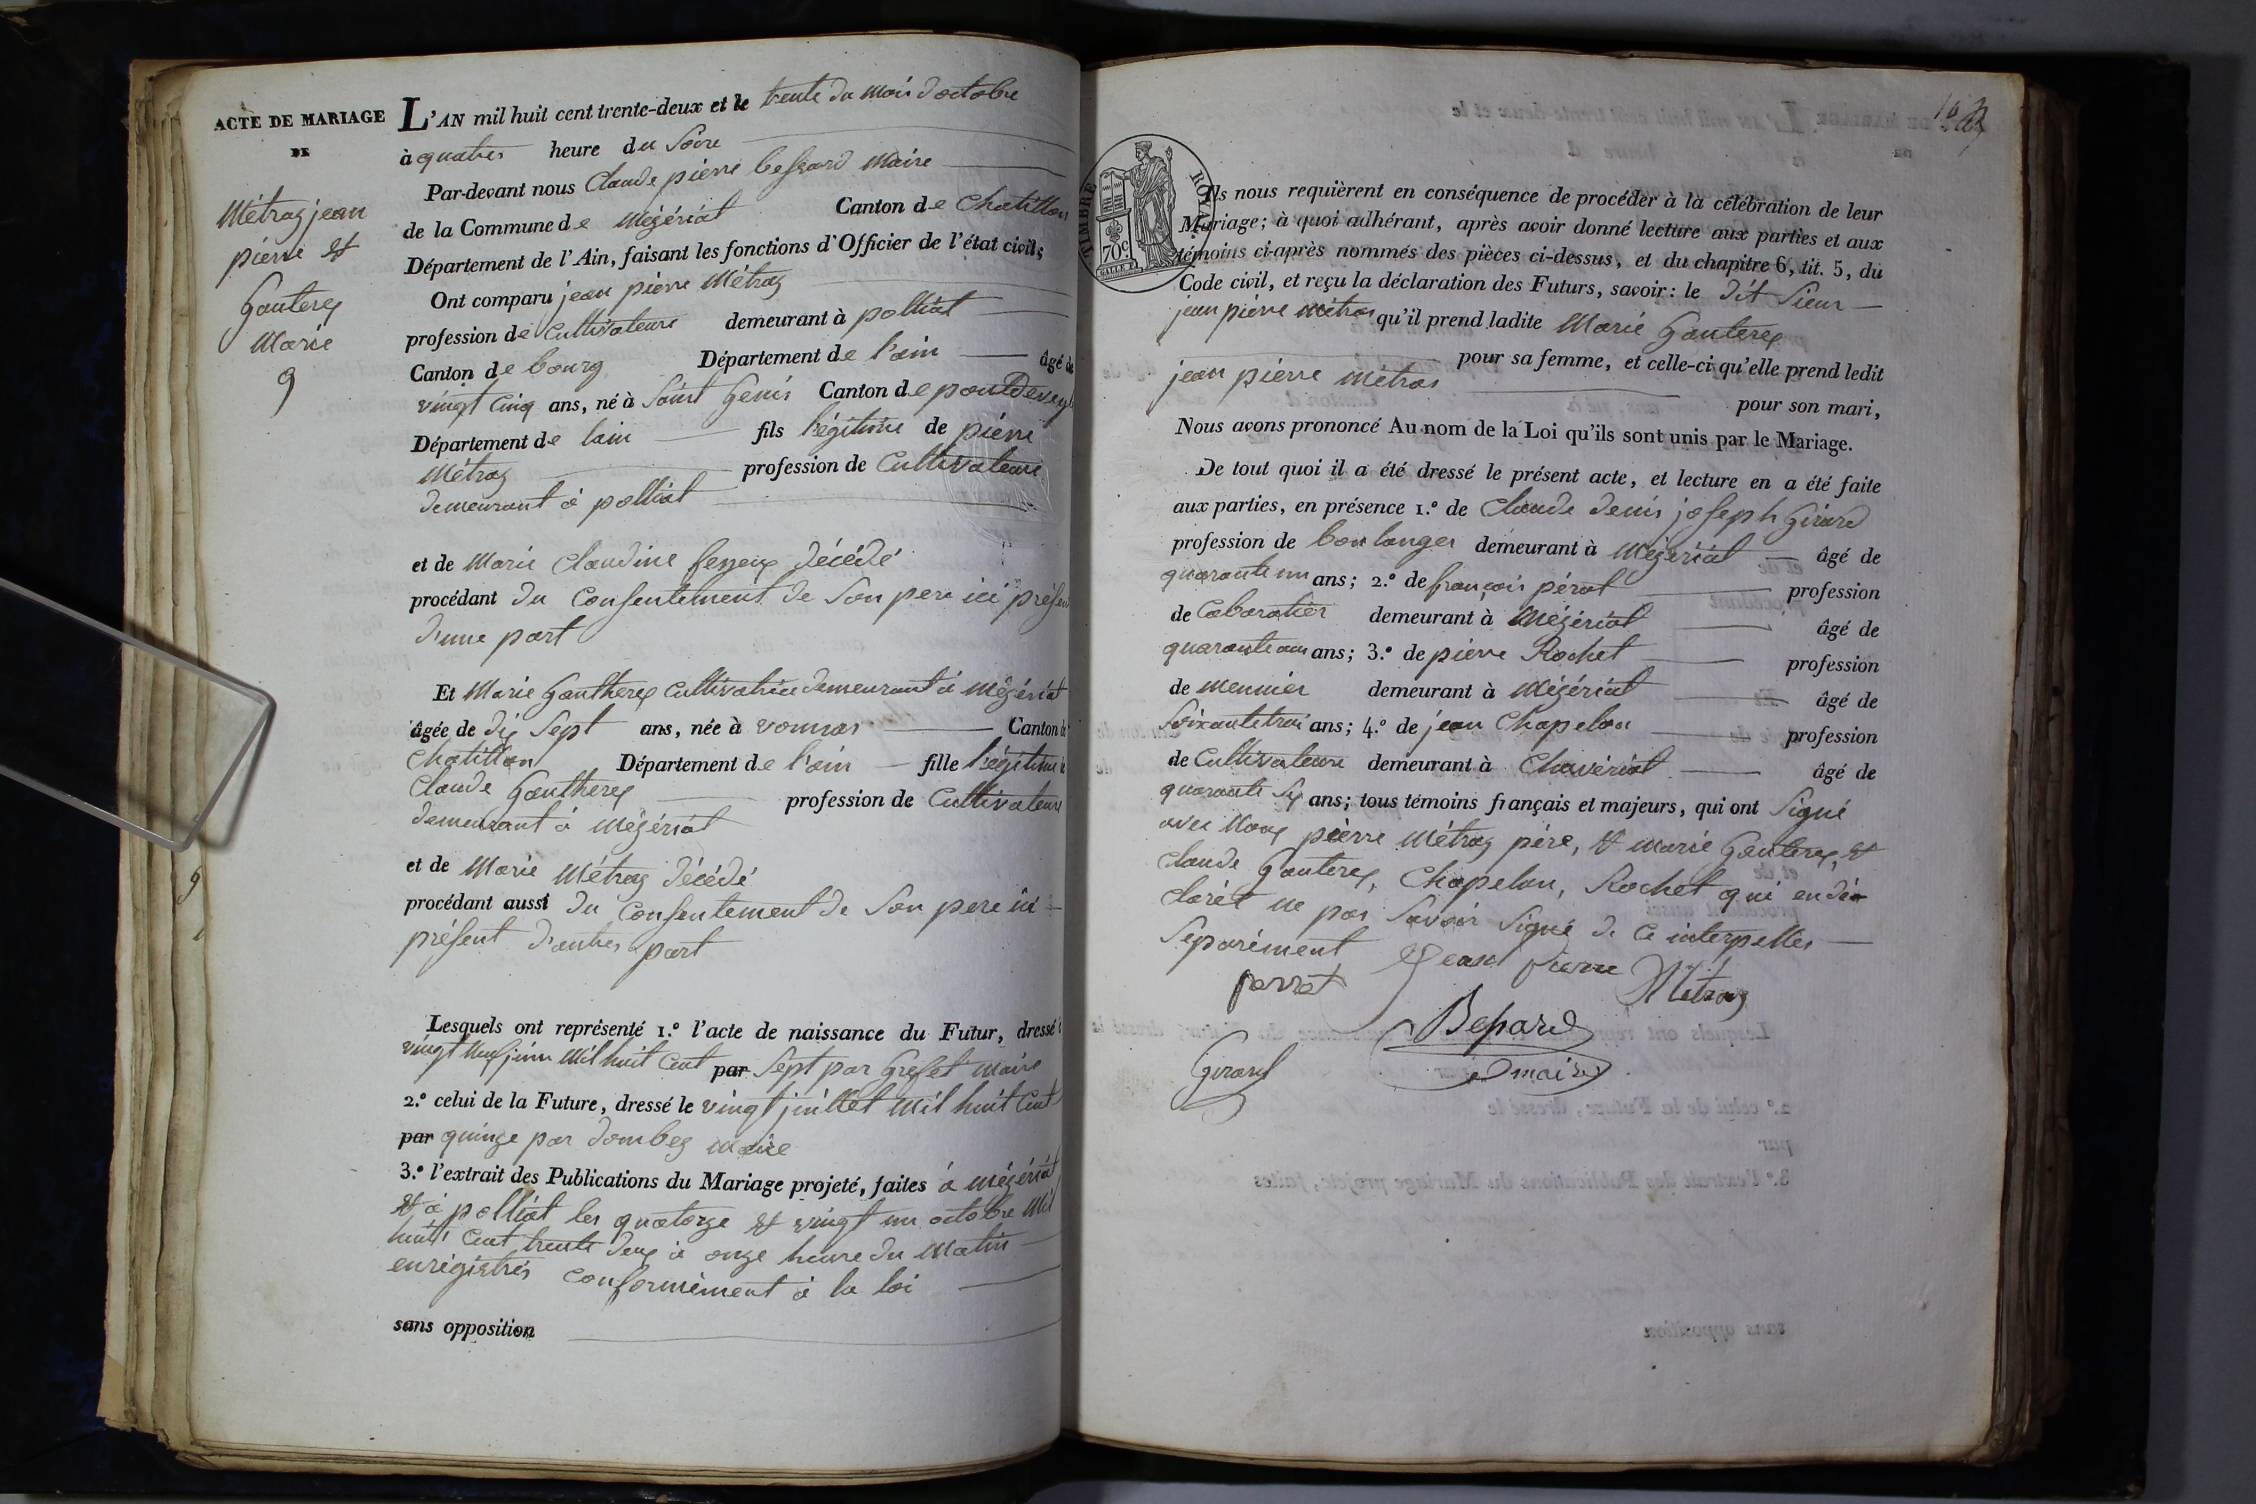 ACTE DE MARIAGE
DE
Métraz jean
pierre &
Gauterex
Marie
9
L'AN mil huit cent trente-deux et le trente du mois d'octobre
à quatres heure du soire
Par-devant nous Claude pierre bessard Maire
de la Commune de Mézériat Canton de Chatillon
Département de l'Ain, faisant les fonctions d'Officier de l'état civil;
Ont comparu jean pierre Métraz
profession de Cultivateure demeurant à polliat
Canton de bourg Département de l'ain âgé de
vingt cinq ans, né à Saint Genis Canton de pontdeveyle
Département de lain fils légitime de piérre
Métraz profession de Cultivateure
demeurant à polliat
et de Marie Claudine décédé
procédant du Consentement de Son pere ici présent
d'une part
Et Marie Gautherex Cultivatrice demeurant à mézériat
âgée de dix Sept ans, née à vonnas Canton de
Chatillon Département de l'ain fille légitime de
Claude Gautherex profession de Cultivateure
demeurant à mézériat
et de Marie Métraz décédé
procédant aussi du Consentement de Son pere ici
présent d'autres part
Lesquels ont représenté 1.° l'acte de naissance du Futur, dressé le
vingt neuf juin Mil huit Cent par Sept par Maire
2.° celui de la Future, dressé le vingt juillet Mil huit Cent
par quinze par dombez Maire
3.° l'extrait des Publications du Mariage projeté, faites à mézériat
& à polliat les quatorze & vingt un octobre Mil
huits Cent trente deux à onze heure du Matin
enrégistrés Conformément à la loi
sans opposition
TIMBRE ROYAL
70c.
Ils nous requièrent en conséquence de procéder à la célébration de leur
Mariage; à quoi adhérant, après avoir donné lecture aux parties et aux
témoins ci-après nommés des pièces ci-dessus, et du chapitre 6, tit. 5, du
Code civil, et reçu la déclaration des Futurs, savoir: le dit Sieur
jean piérre métras qu'il prend ladite Marie Gauterex
pour sa femme, et celle-ci qu'elle prend ledit
jean pierre métras
pour son mari,
Nous avons prononcé Au nom de la Loi qu'ils sont unis par le Mariage.
De tout quoi il a été dressé le présent acte, et lecture en a été faite
aux parties, en présence 1.° de Claude denis joseph Girard
profession de boulanger demeurant à mézériat âgé de
quarante un ans; 2.° de françois pérat profession
de Cabaratier demeurant à Mézériat âgé de
quarante ans; 3.° de pierre Rochet profession
de meunier demeurant à Mézériat âgé de
Soixante trois ans; 4.° de jean Chapelon profession
de Cultivateure demeurant à Chavériat âgé de
quarante Six ans; tous témoins français et majeurs, qui ont Signé
avec Nous pierre Métraz pére, & marie Gauterex, &
Claude Gauterex, Chapelon, Rochet qui en dé
clarét ne pas Savoir Signé de Ce interpellés
Séparément Jean Pierre Métraz
perrat
Bessard
maire
Girard